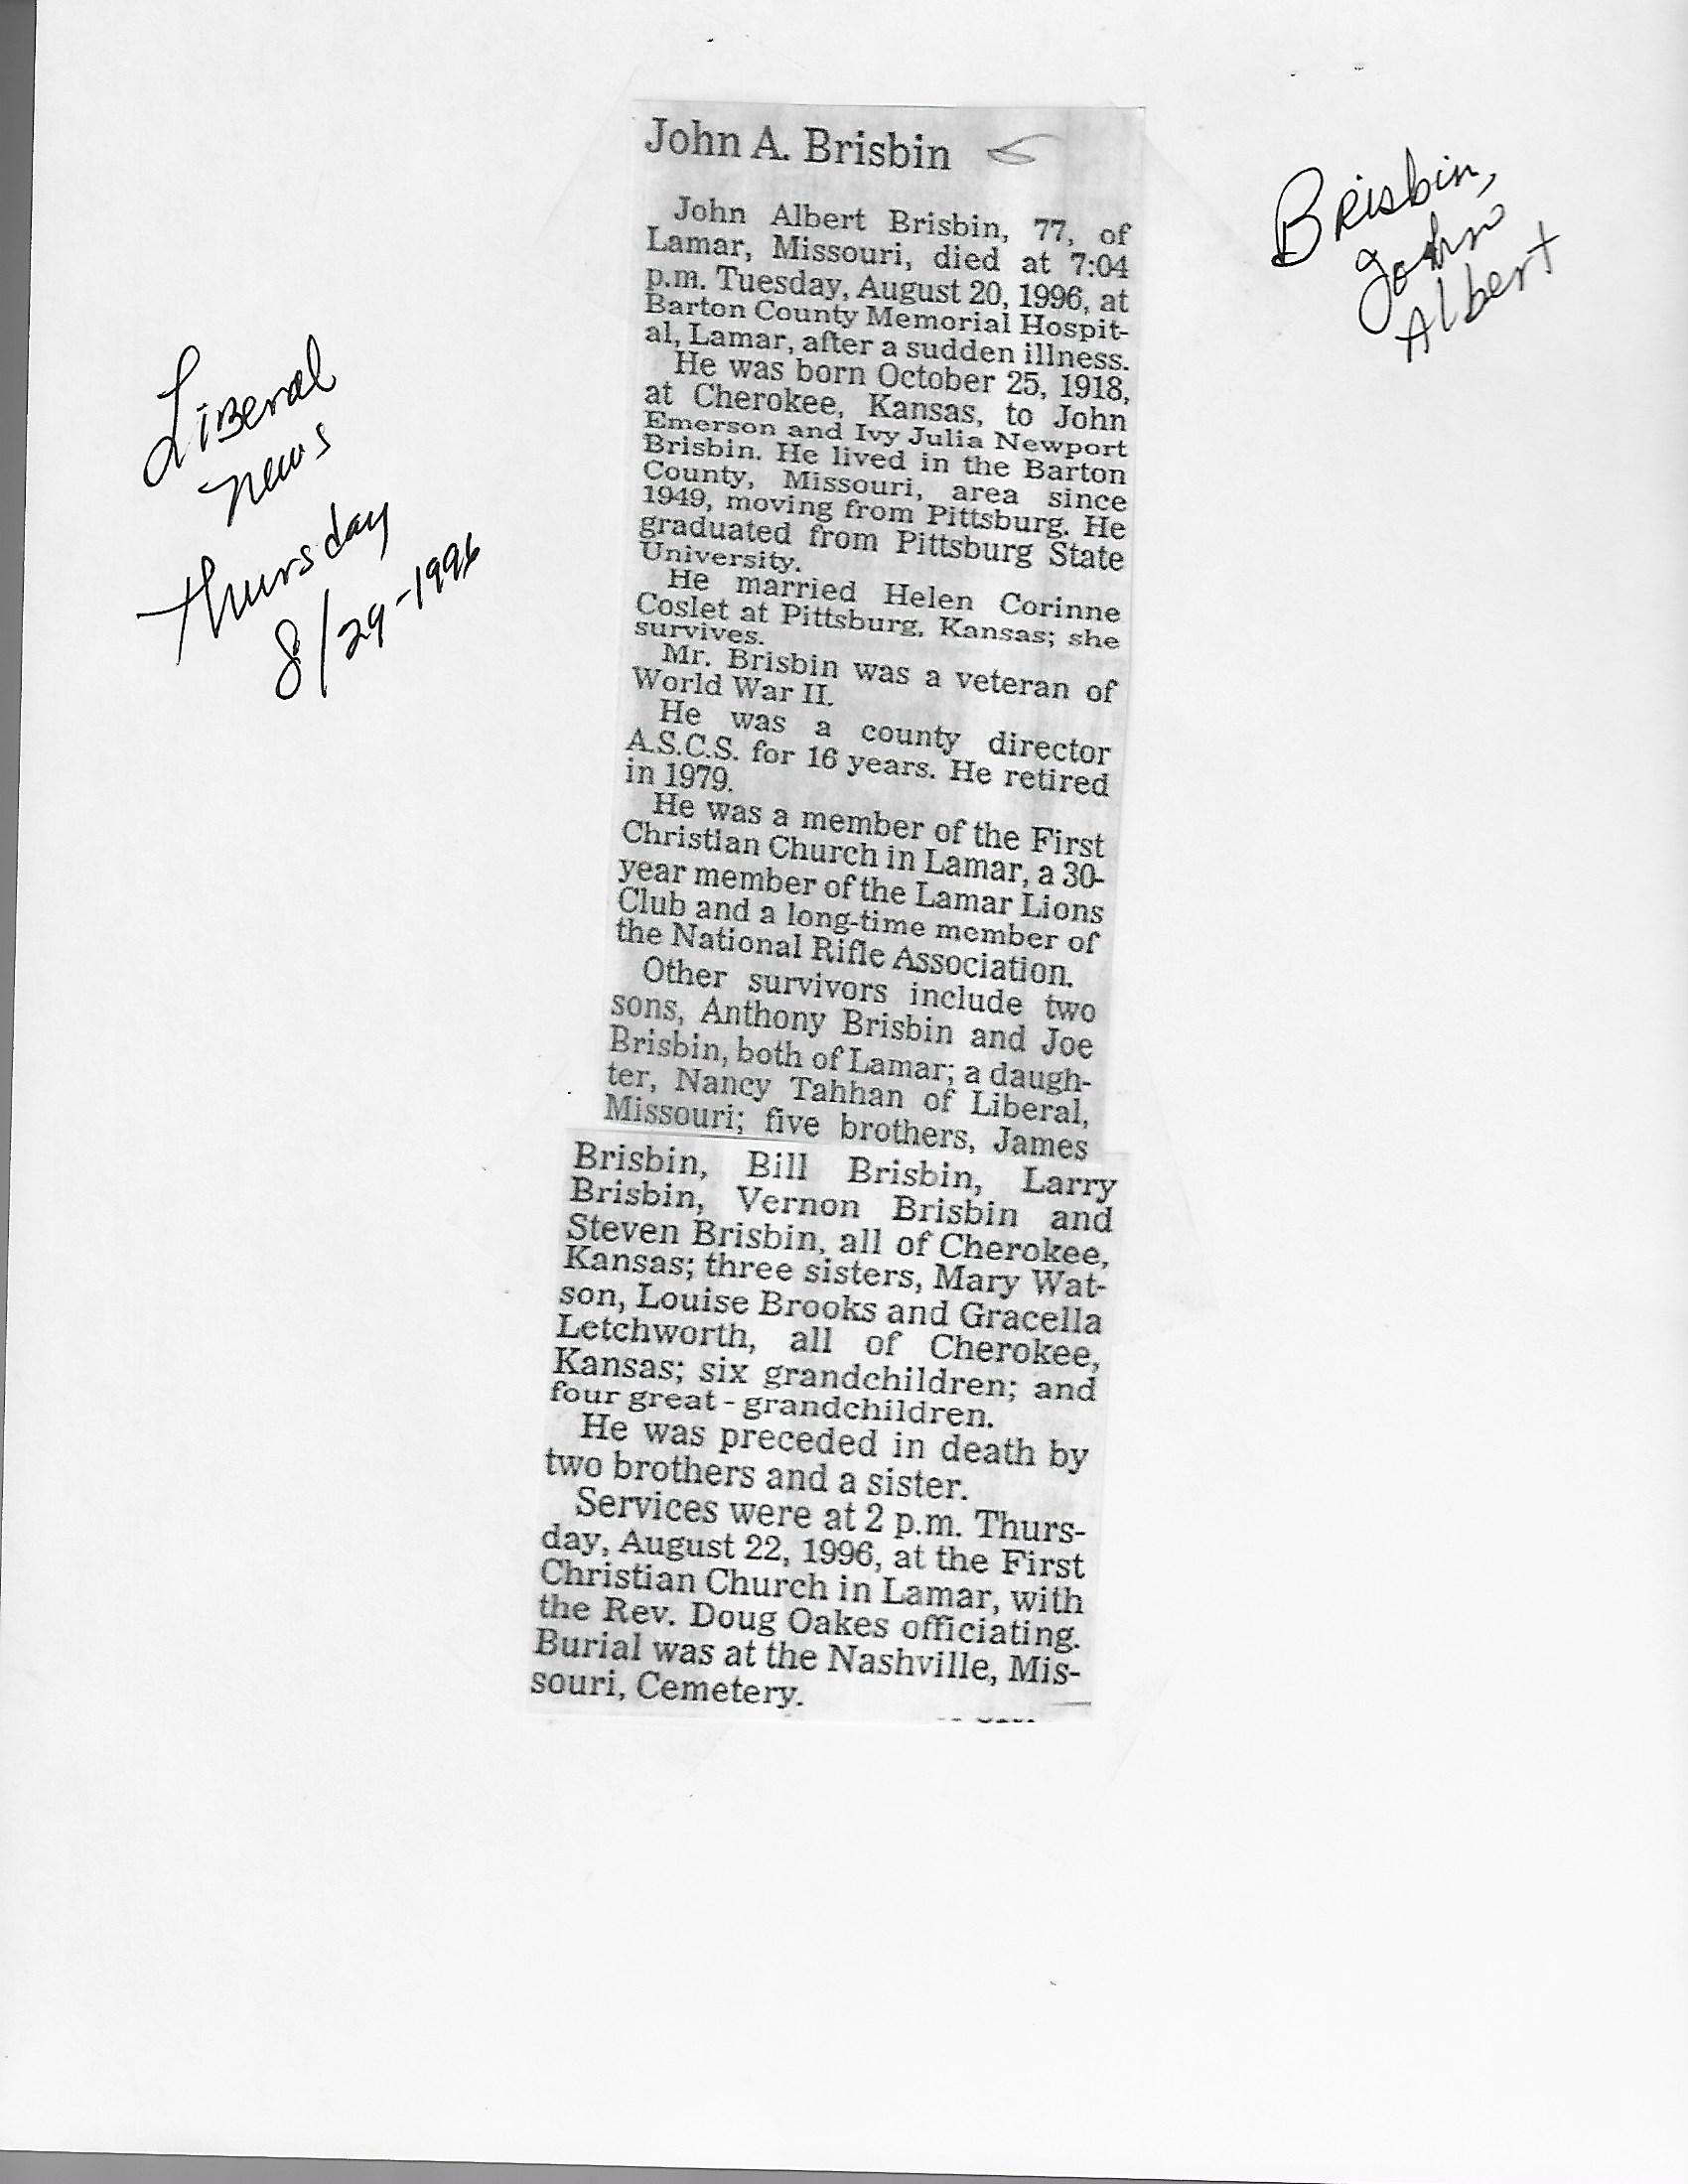 John A. Brisbin
John Albert Brisbin, 77, of
Lamar, Missouri, died at 7:04
p.m. Tuesday, August 20, 1996, at
Barton County Memorial Hospit-
al, Lamar, after a sudden illness.
He was born October 25, 1918,
at Cherokee, Kansas, to John
Emerson and Ivy Julia Newport
Brisbin. He lived in the Barton
County, Missouri, area since
1949, moving from Pittsburg. He
graduated from Pittsburg State
University.
He married Helen Corinne
Coslet at Pittsburg, Kansas; she
survives.
Mr. Brisbin was a veteran of
World War II.
He was a county director
A.S.C.S. for 16 years. He retired
in 1979.
He was a member of the First
Christian Church in Lamar, a 30-
year member of the Lamar Lions
Club and a long-time member of
the National Rifle Association.
Other survivors include two
sons, Anthony Brisbin and Joe
Brisbin, both of Lamar; a daugh-
ter, Nancy Tahhan of Liberal,
Missouri; five brothers, James
Brisbin, Bill Brisbin, Larry
Brisbin, Vernon Brisbin and
Steven Brisbin, all of Cherokee,
Kansas; three sisters, Mary Wat-
son, Louise Brooks and Gracella
Letchworth, all of Cherokee,
Kansas; six grandchildren; and
four great - grandchildren.
He was preceded in death by
two brothers and a sister.
Services were at 2 p.m. Thurs-
day, August 22, 1996, at the First
Christian Church in Lamar, with
the Rev. Doug Oakes officiating.
Burial was at the Nashville, Mis-
souri, Cemetery.
Liberal
News
Thursday
8/29-1996
Brisbin,
John
Albert